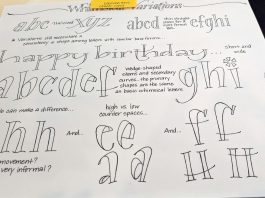 Variations
abc xyz abcd efghi
Variations still represent a
consistency of shape among letters with similar base forms...
happy birthday...
short and
wide
abcdef ghi
wedge-shaped
stems and secondary
curves. the primary
shapes are the same
as basic whimsical letters
can make a difference...
high vs. low
counter spaces...
hh And... ee And... ff
aa HH
movement?
very informal?